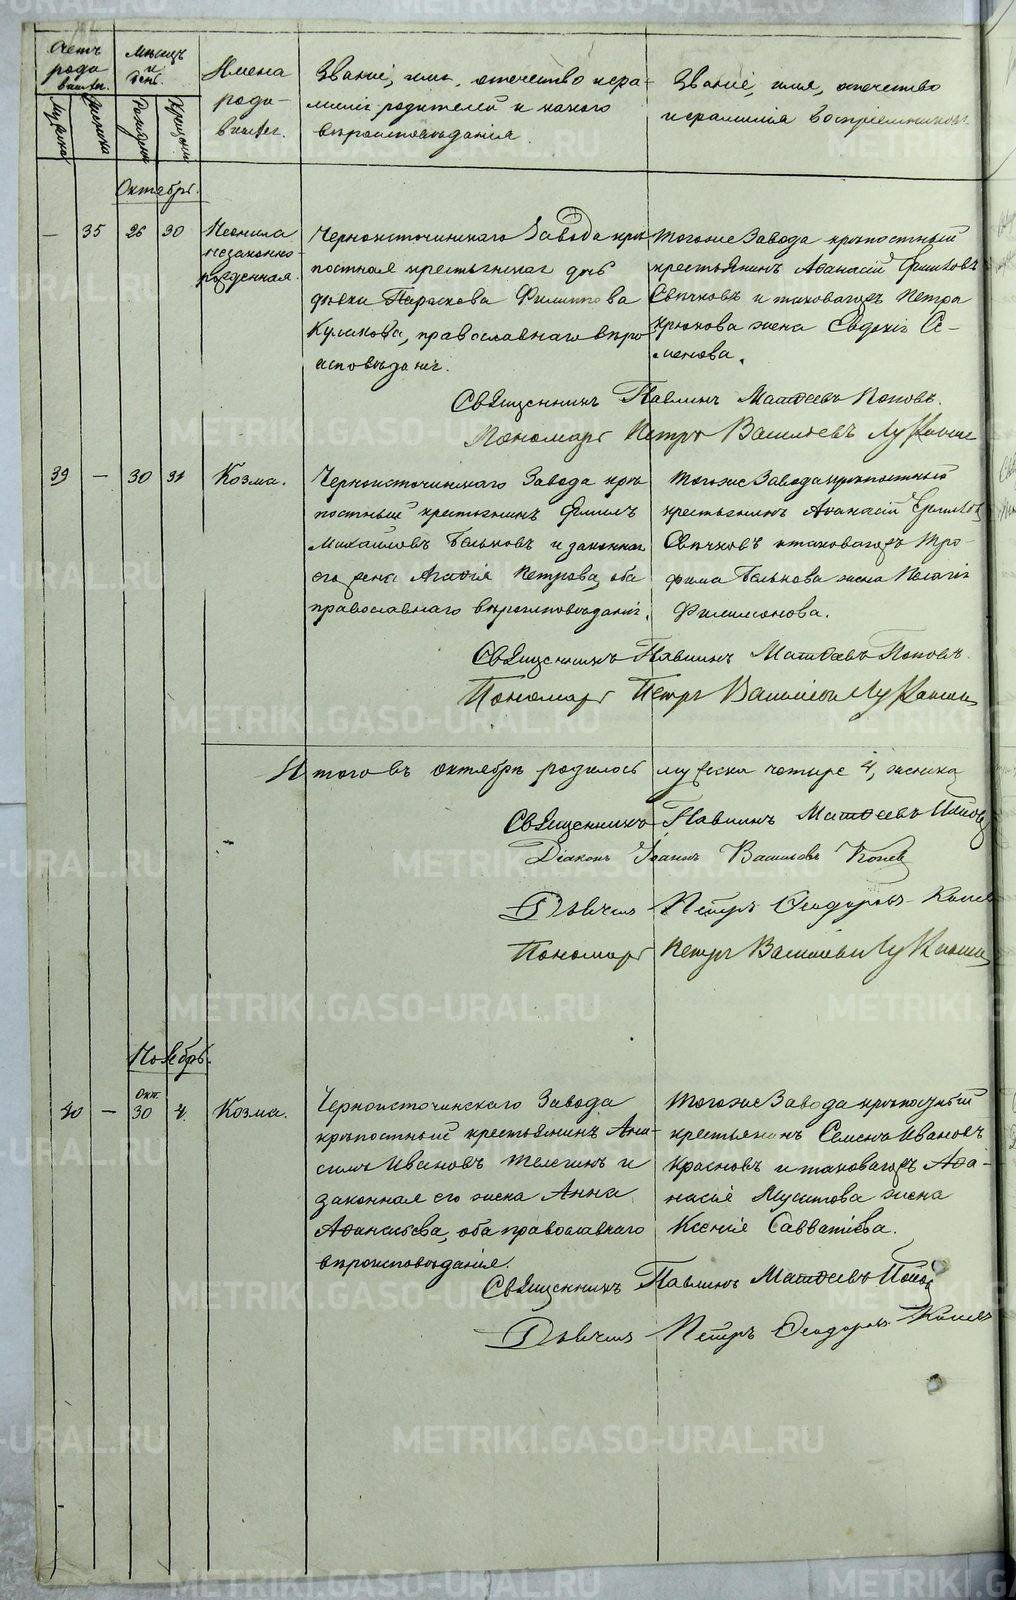 Счетъ родившихся.
Мѣсяцъ и день.
Имена родившихся.
Званіе, имя, отечество и фамиліи родителей и какого вѣроисповѣданія.
Званіе, имя, отечество и фамилія воспріемниковъ
Мужска
Женска
Рожденія
Крещенія
Октябрь.
— 35 26 30 Неонила незаконнорожденная.
Черноисточинскаго Завода крѣ-
постная крестьянская дочь
дѣвка Параскева Филиппова
Куликова, православнаго вѣро
исповѣданія.
Тогоже Завода крѣпостный
крестьянинъ Афанасій Ермиловъ
Свѣчковъ и таковагожъ Петра
Крюкова жена Евдокія Се-
менова.
Священникъ Павлинъ Матѳеевъ Поповъ.
Пономарь Петръ Васильевъ
39 — 30 31 Козма.
Черноисточинскаго Завода крѣ
постный крестьянинъ Филипъ
Михайловъ Бѣльковъ и законная
его жена Агафія Петрова, оба
православнаго вѣроисповѣданія.
Тогоже Завода крѣпостный
крестьянинъ Афанасій Ермиловъ
Свѣчковъ и таковагожъ Тро-
фима Бѣлькова жена Пелагія
Филимонова.
Священникъ Павлинъ Матѳеевъ Поповъ.
Пономарь Петръ Васильевъ
Итого въ октябрѣ родилось мужска четыре 4, женска
Священникъ Павлинъ Матѳеевъ Поповъ
Діаконъ Іоаннъ Васильевъ
Дьячекъ Петръ Ѳеодоровъ
Пономарь Петръ Васильевъ
Ноябрь.
40 — Окт. 30 4. Козма.
Черноисточинскаго Завода
крѣпостный крестьянинъ Ана-
силъ Ивановъ Телегинъ и
законная его жена Анна
Афанасьева, оба православнаго
вѣроисповѣданія.
Тогоже Завода крѣпостный
крестьянинъ Семенъ Ивановъ
Красновъ и таковагожъ Афа-
насія жена
Ксенія Савватіева.
Священникъ Павлинъ Матѳеевъ Поповъ
Дьячекъ Петръ Ѳеодоровъ
METRIKI.GASO-URAL.RU